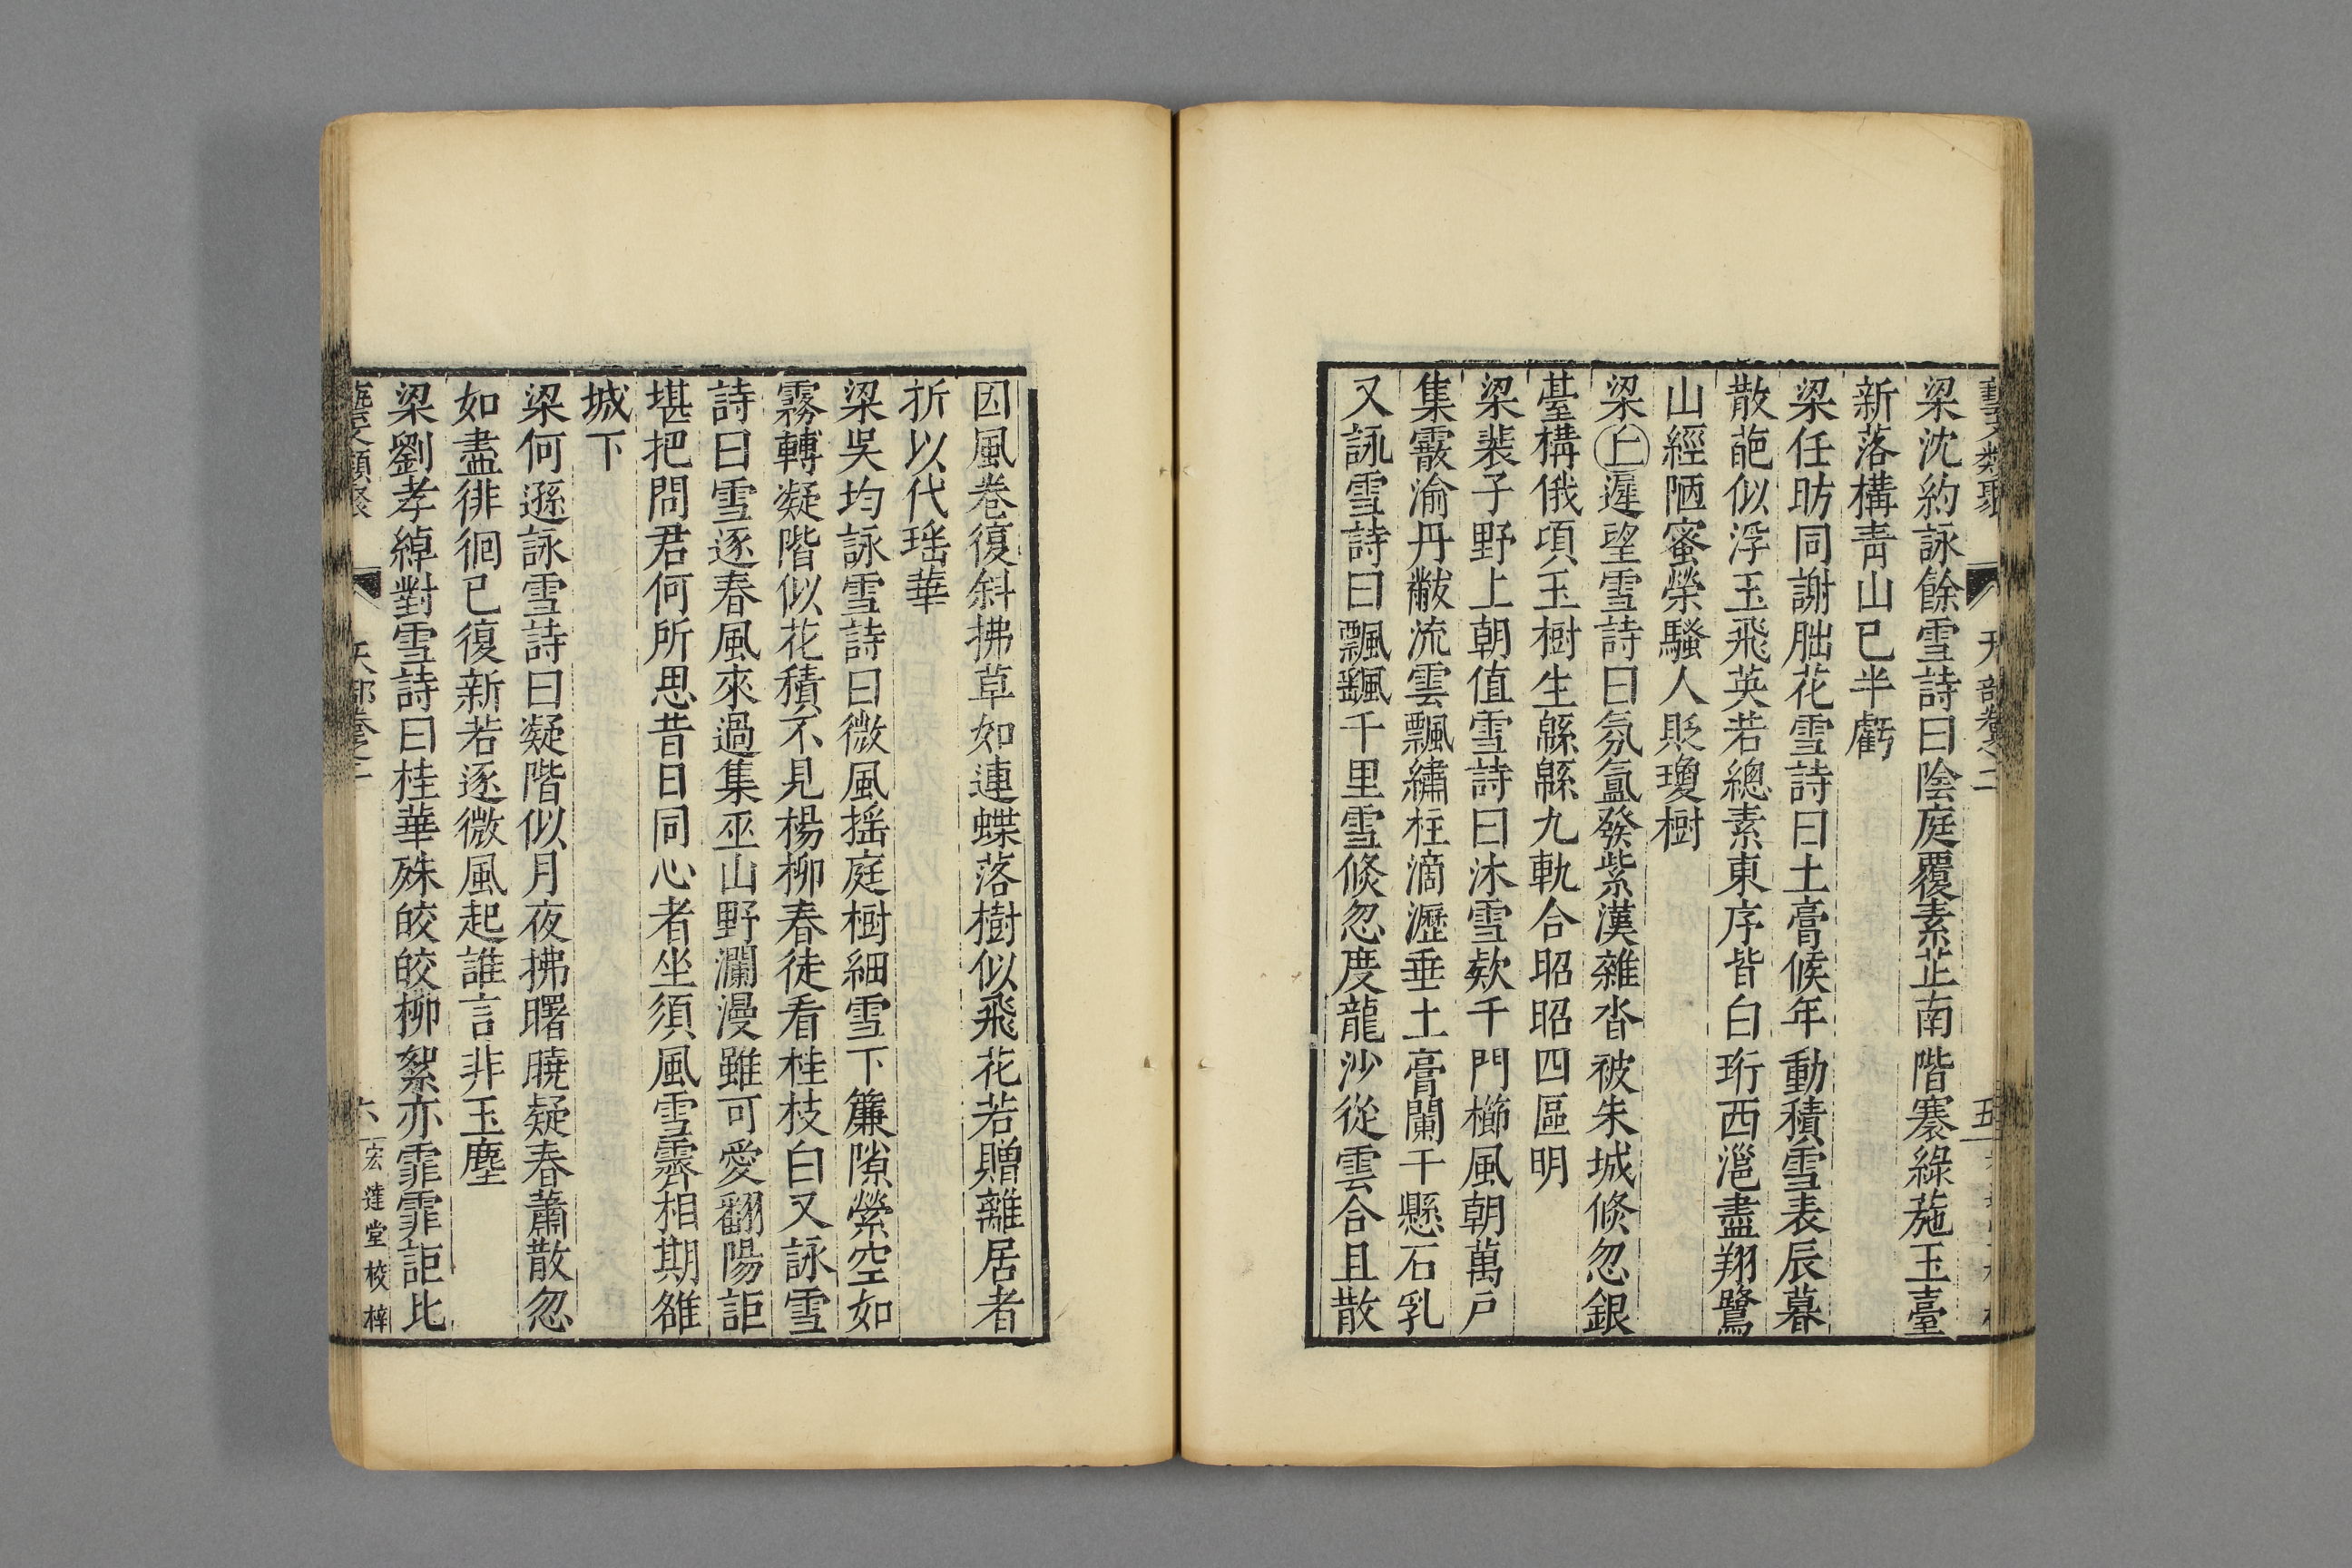 藝文類聚 天部卷之二 五
梁沈約詠餘雪詩曰陰庭覆素芷南階褰綠葹玉臺
新落構青山已半虧
梁任昉同謝朏花雪詩曰土膏候年動積雪表辰暮
散葩似浮玉飛英若總素東序皆白珩西滬盡翔鷺
山經陋蜜榮騷人貶瓊樹
梁丘遲望雪詩曰氛氳發紫漢雜沓被朱城倏忽銀
臺構俄頃玉樹生緜緜九軌合昭昭四區明
梁裴子野上朝值雪詩曰沐雪款千門櫛風朝萬戶
集霰渝丹黻流雲飄繡柱滴瀝垂土膏闌干懸石乳
又詠雪詩曰飄颻千里雪倏忽度龍沙從雲合且散
因風卷復斜拂草如連蝶落樹似飛花若贈離居者
折以代瑶華
梁吳均詠雪詩曰微風摇庭樹細雪下簾隙縈空如
霧轉凝階似花積不見楊柳春徒看桂枝白又詠雪
詩曰雪逐春風來過集巫山野瀾漫雖可愛翻陽詎
堪把問君何所思昔日同心者坐須風雪霽相期雒
城下
梁何遜詠雪詩曰凝階似月夜拂曙曉疑春蕭散忽
如盡徘徊已復新若逐微風起誰言非玉塵
梁劉孝綽對雪詩曰桂華殊皎皎柳絮亦霏霏詎比
藝文類聚 天部卷之二 六 宏達堂校梓